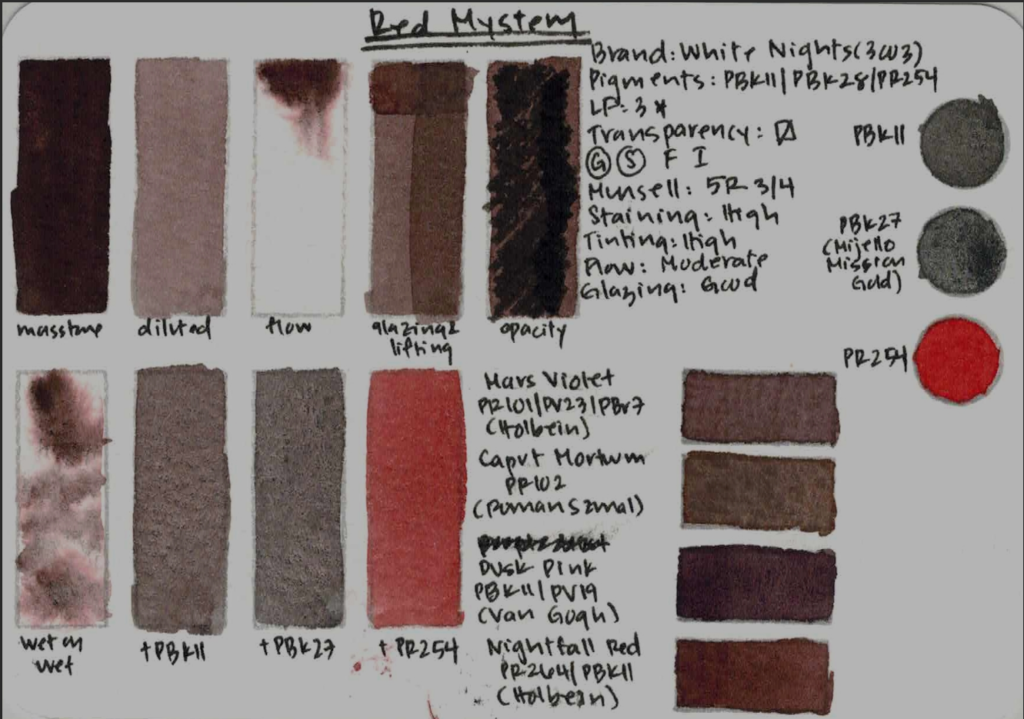 Red Mystery
Brand: White Nights (3W3)
Pigments: PBk11/PBk28/PR254
LF: 3 *
Transparency:
G S F I
Munsell: 5R 3/4
Staining: High
Tinting: High
Flow: Moderate
Glazing: Good
PBk11
PBk27
(Mijello
Mission
Gold)
PR254
masstone
diluted
flow
glazing &
lifting
opacity
wet on
wet
+PBk11
+PBk27
+PR254
Mars Violet
PR101/PV23/PBr7
(Holbein)
Caput Mortuum
PR102
(Roman Szmal)
Dusk Pink
PBk11/PV19
(Van Gogh)
Nightfall Red
PR264/PBk11
(Holbein)